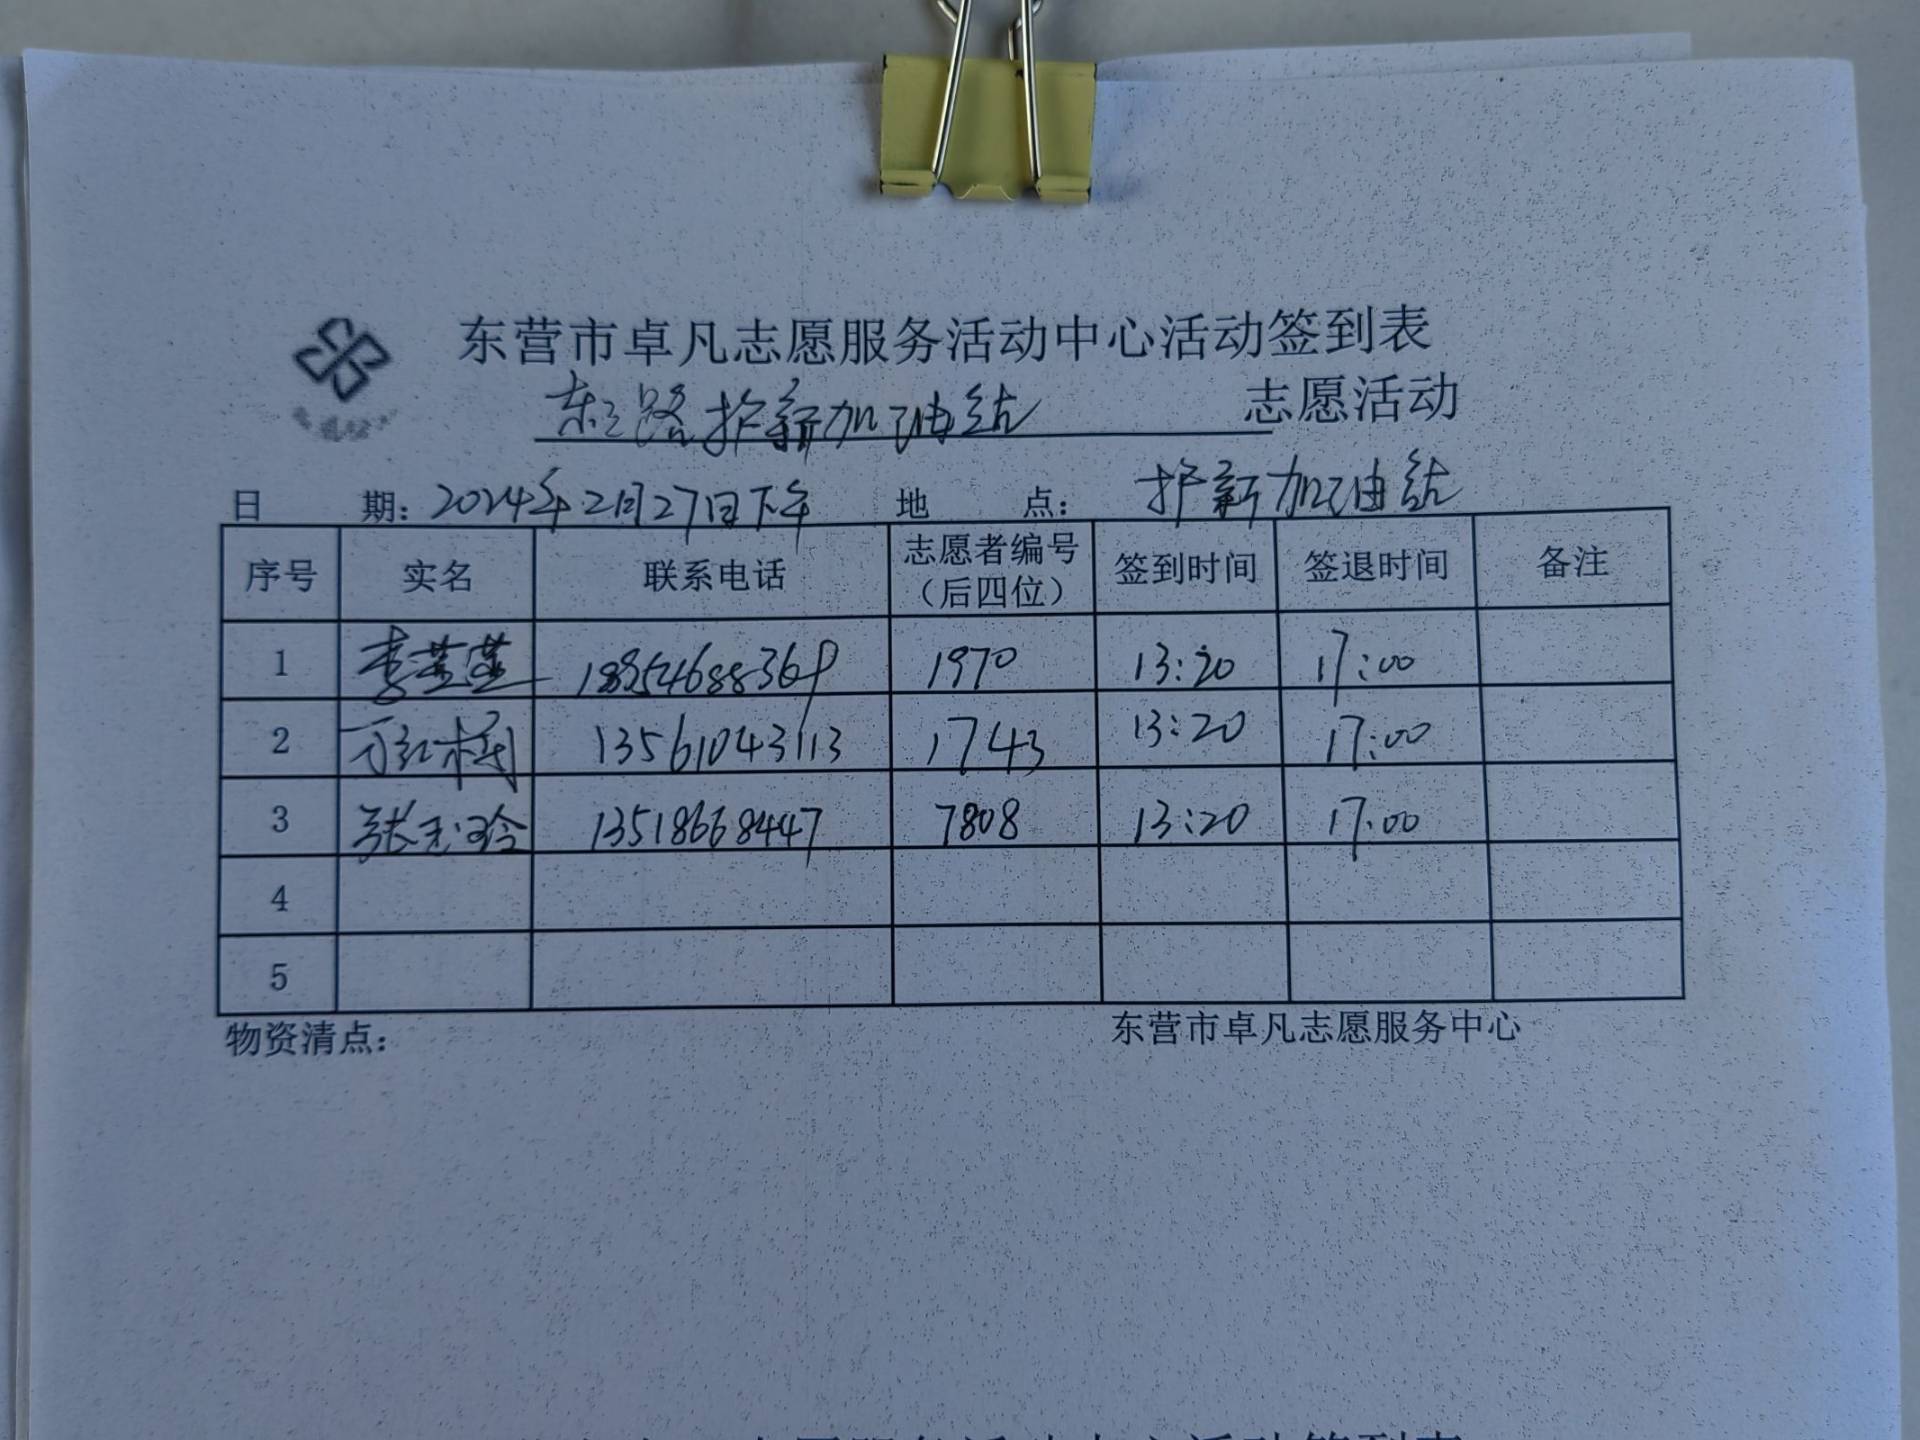 东营市卓凡志愿服务活动中心活动签到表
东三路护薪加油站 志愿活动
日 期：2024年2月27日下午 地 点： 护薪加油站
序号 实名 联系电话 志愿者编号（后四位） 签到时间 签退时间 备注
1 李莹莹 18954688369 1970 13:20 17:00
2 万红梅 13561043113 1743 13:20 17:00
3 张玉玲 13518668447 7808 13:20 17:00
4
5
物资清点： 东营市卓凡志愿服务中心